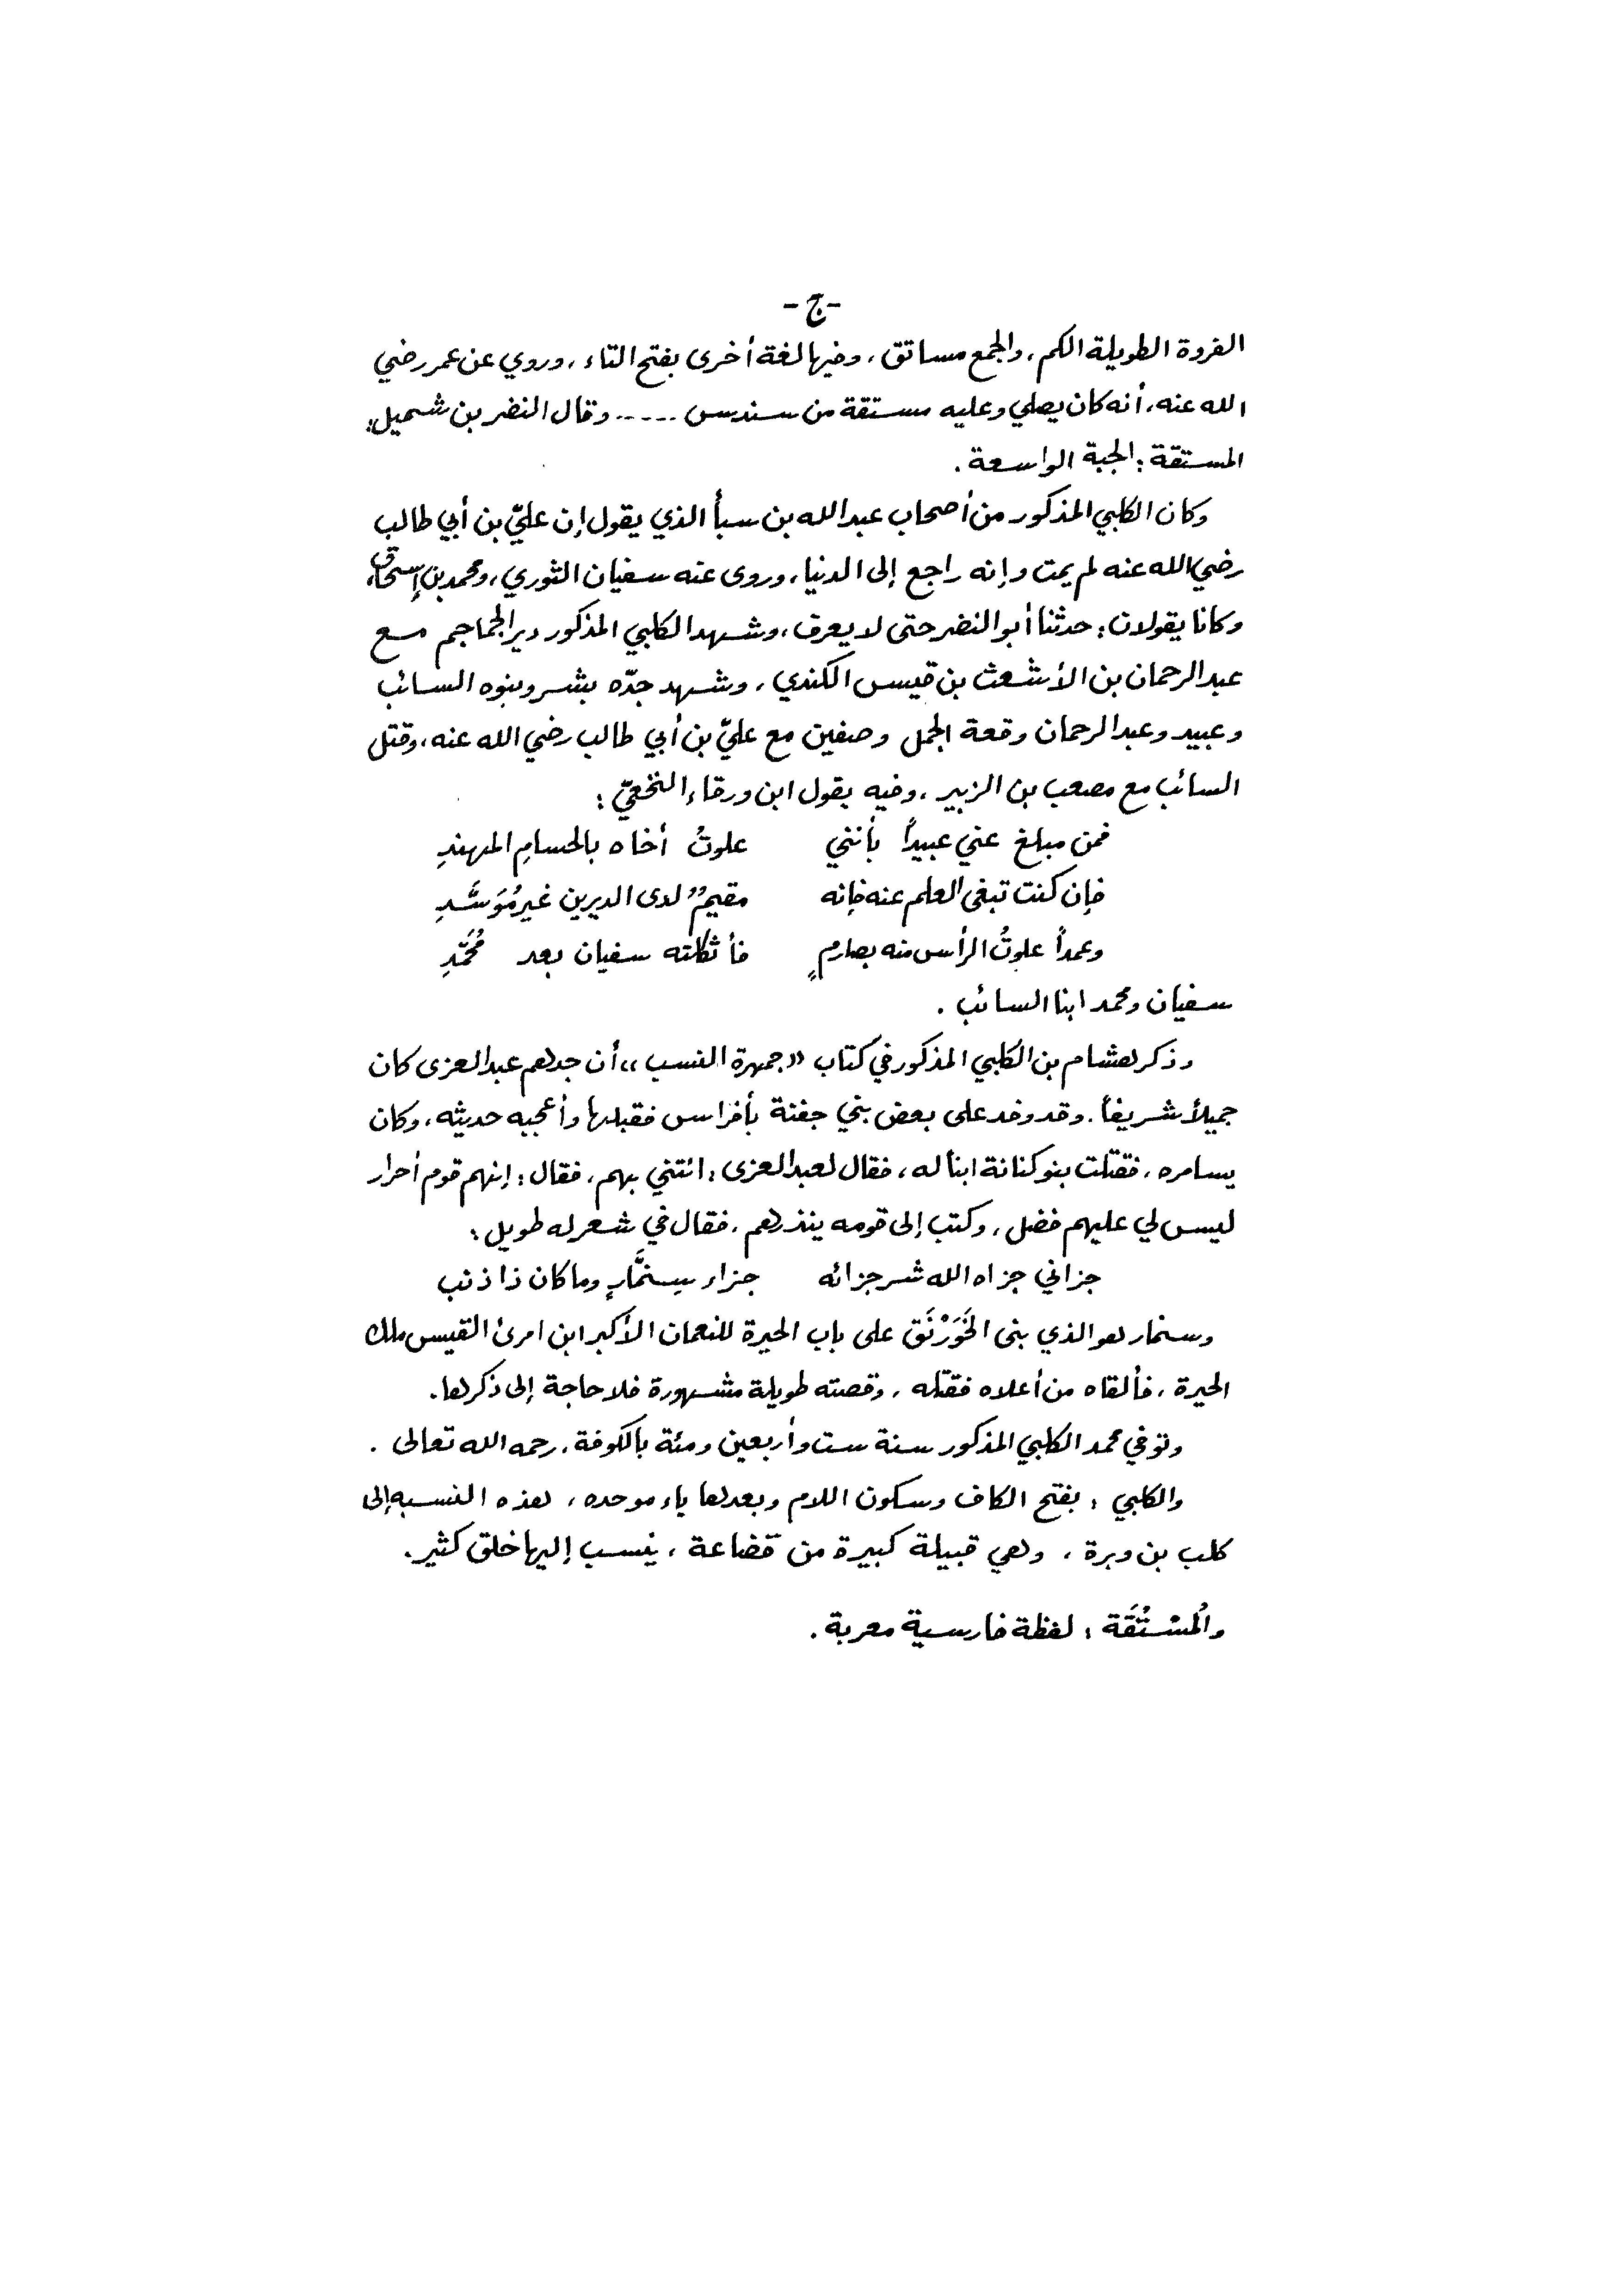 -ج-
الفروة الطويلة الكم، والجمع مساتق، وفيها لغة أخرى بفتح التاء، وروي عن عمر رضي
الله عنه، أنه كان يصلي وعليه مستقة من سندس ..... وقال النضر بن شميل:
المستقة: الجبة الواسعة.
وكان الكلبي المذكور من أصحاب عبد الله بن سبأ الذي يقول إن عليّ بن أبي طالب
رضي الله عنه لم يمت وإنه راجع إلى الدنيا، وروى عنه سفيان الثوري، ومحمد بن إسحاق،
وكانا يقولان: حدثنا أبو النضر حتى لا يعرف، وشهد الكلبي المذكور دير الجماجم مع
عبد الرحمان بن الأشعث بن قيس الكندي، وشهد جدّه بشر وبنوه السائب
وعبيد وعبد الرحمان وقعة الجمل وصفين مع عليّ بن أبي طالب رضي الله عنه، وقتل
السائب مع مصعب بن الزبير، وفيه يقول ابن ورقاء النخعيّ:
فمن مبلغ عني عبيداً بأنني علوتُ أخاه بالحسامِ المهندِ
فإن كنت تبغي العلم عنه فإنه مقيمٌ لدى الديرين غير مُوَسَّدِ
وعمداً علوتُ الرأس منه بصارمٍ فأثكلته سفيان بعد مُحَمَّدِ
سفيان ومحمد ابنا السائب.
وذكر هشام بن الكلبي المذكور في كتاب «جمهرة النسب» أن جدهم عبد العزى كان
جميلاً شريفاً. وقد وفد على بعض بني جفنة بأفراس فقبلها وأعجبه حديثه، وكان
يسامره، فقتلت بنو كنانة ابناً له، فقال لعبد العزى: ائتني بهم، فقال: إنهم قوم أحرار
ليس لي عليهم فضل، وكتب إلى قومه ينذرهم، فقال في شعر له طويل:
جزاني جزاه الله شر جزائه جزاء سِنمَّارٍ وما كان ذا ذنب
وسنمار هو الذي بنى الخَوَرْنَق على باب الحيرة للنعمان الأكبر ابن امرئ القيس ملك
الحيرة، فألقاه من أعلاه فقتله، وقصته طويلة مشهورة فلا حاجة إلى ذكرها.
وتوفي محمد الكلبي المذكور سنة ست وأربعين ومئة بالكوفة، رحمه الله تعالى.
والكلبي: بفتح الكاف وسكون اللام وبعدها باء موحده، هذه النسبه إلى
كلب بن وبرة، وهي قبيلة كبيرة من قضاعة، ينسب إليها خلق كثير.
والمُسْتُقَة: لفظة فارسية معربة.